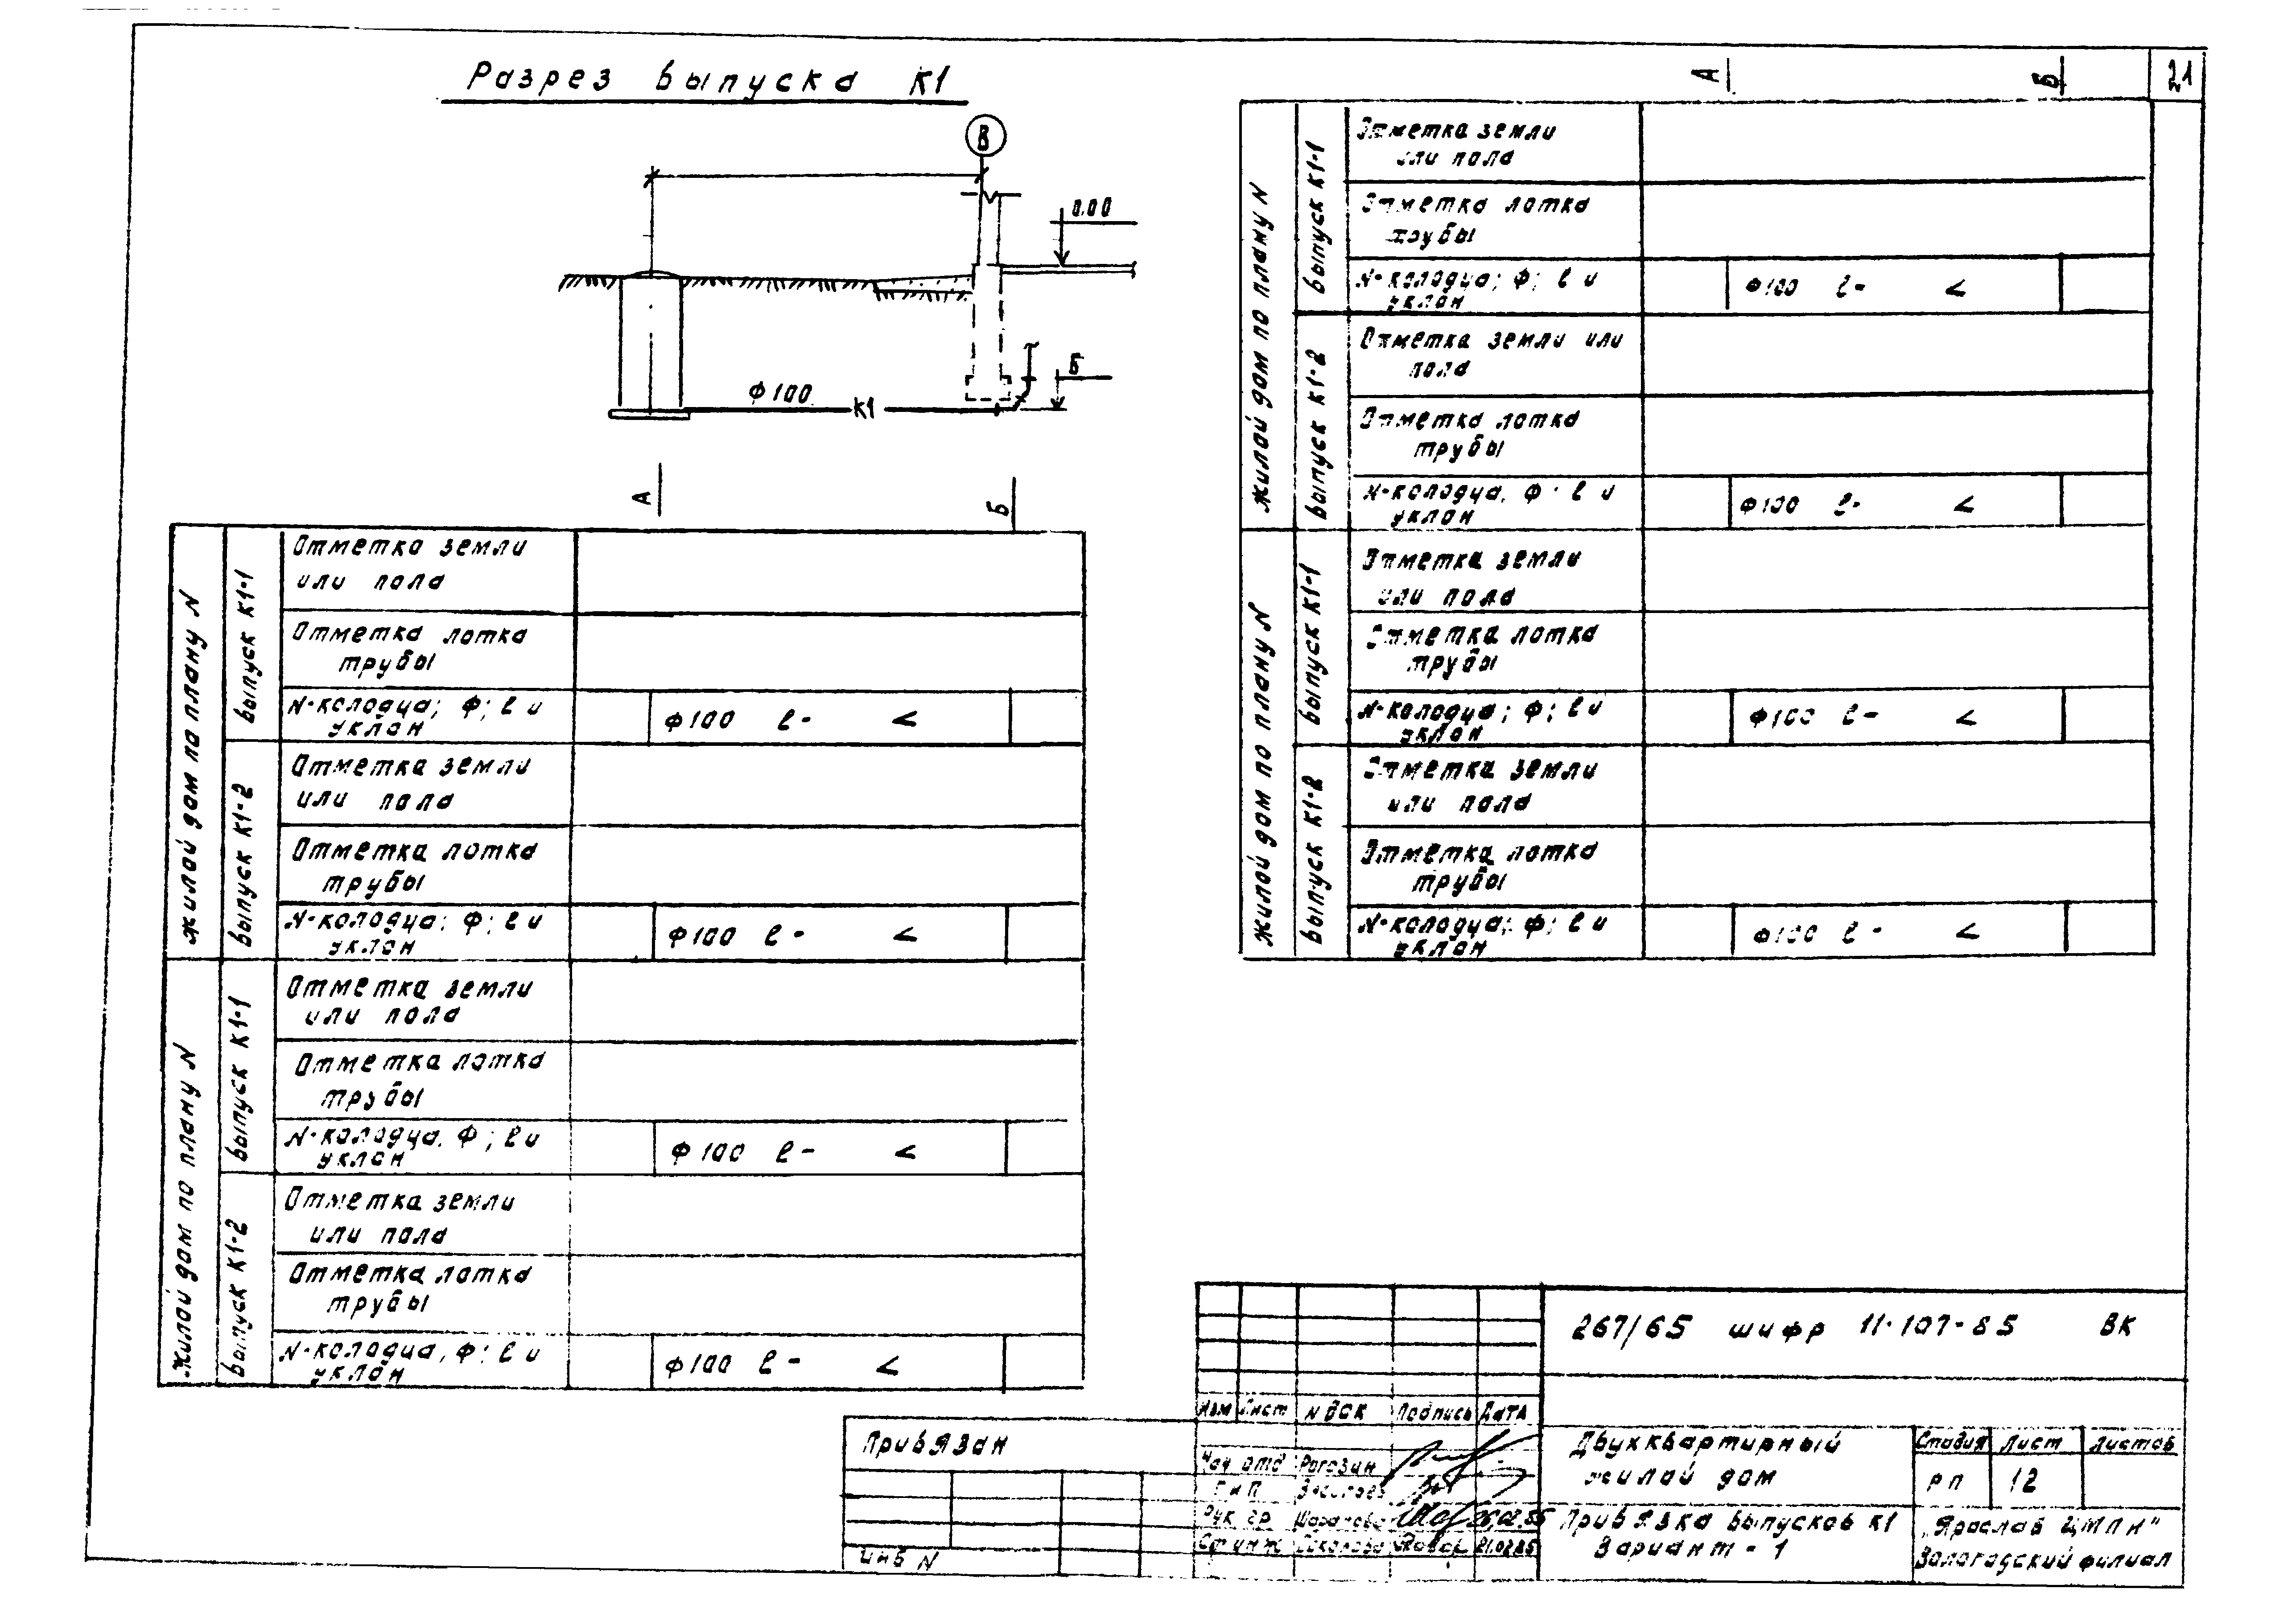 21
Разрез выпуска К1
В
0.00
Б
Ф100
К1
А
Б
жилой дом по плану N
выпуск К1-1
Отметка земли
или пола
Отметка лотка
трубы
N-колодца; Ф; l и
уклон
Ф100 l- <
выпуск К1-2
Отметка земли
или пола
Отметка лотка
трубы
N-колодца; Ф; l и
уклон
Ф100 l- <
жилой дом по плану N
выпуск К1-1
Отметка земли
или пола
Отметка лотка
трубы
N-колодца. Ф; l и
уклон
Ф100 l- <
выпуск К1-2
Отметка земли
или пола
Отметка лотка
трубы
N-колодца, Ф; l и
уклон
Ф100 l- <
А
Б
жилой дом по плану N
выпуск К1-1
Отметка земли
или пола
Отметка лотка
трубы
N-колодца; Ф; l и
уклон
Ф100 l- <
выпуск К1-2
Отметка земли или
пола
Отметка лотка
трубы
N-колодца. Ф; l и
уклон
Ф100 l- <
жилой дом по плану N
выпуск К1-1
Отметка земли
или пола
Отметка лотка
трубы
N-колодца; Ф; l и
уклон
Ф100 l- <
выпуск К1-2
Отметка земли
или пола
Отметка лотка
трубы
N-колодца; Ф; l и
уклон
Ф100 l- <
267/65 шифр 11-107-85 ВК
Изм Лист N док Подпись Дата
Привязан
Нач отд Рогозин
ГИП
Рук гр
Ст инж Соколова 21.02.85
инв N
Двухквартирный
жилой дом
Стадия Лист Листов
рп 12
Привязка выпусков К1
Вариант-1
"Яреслав ЦМПН"
Вологодский филиал